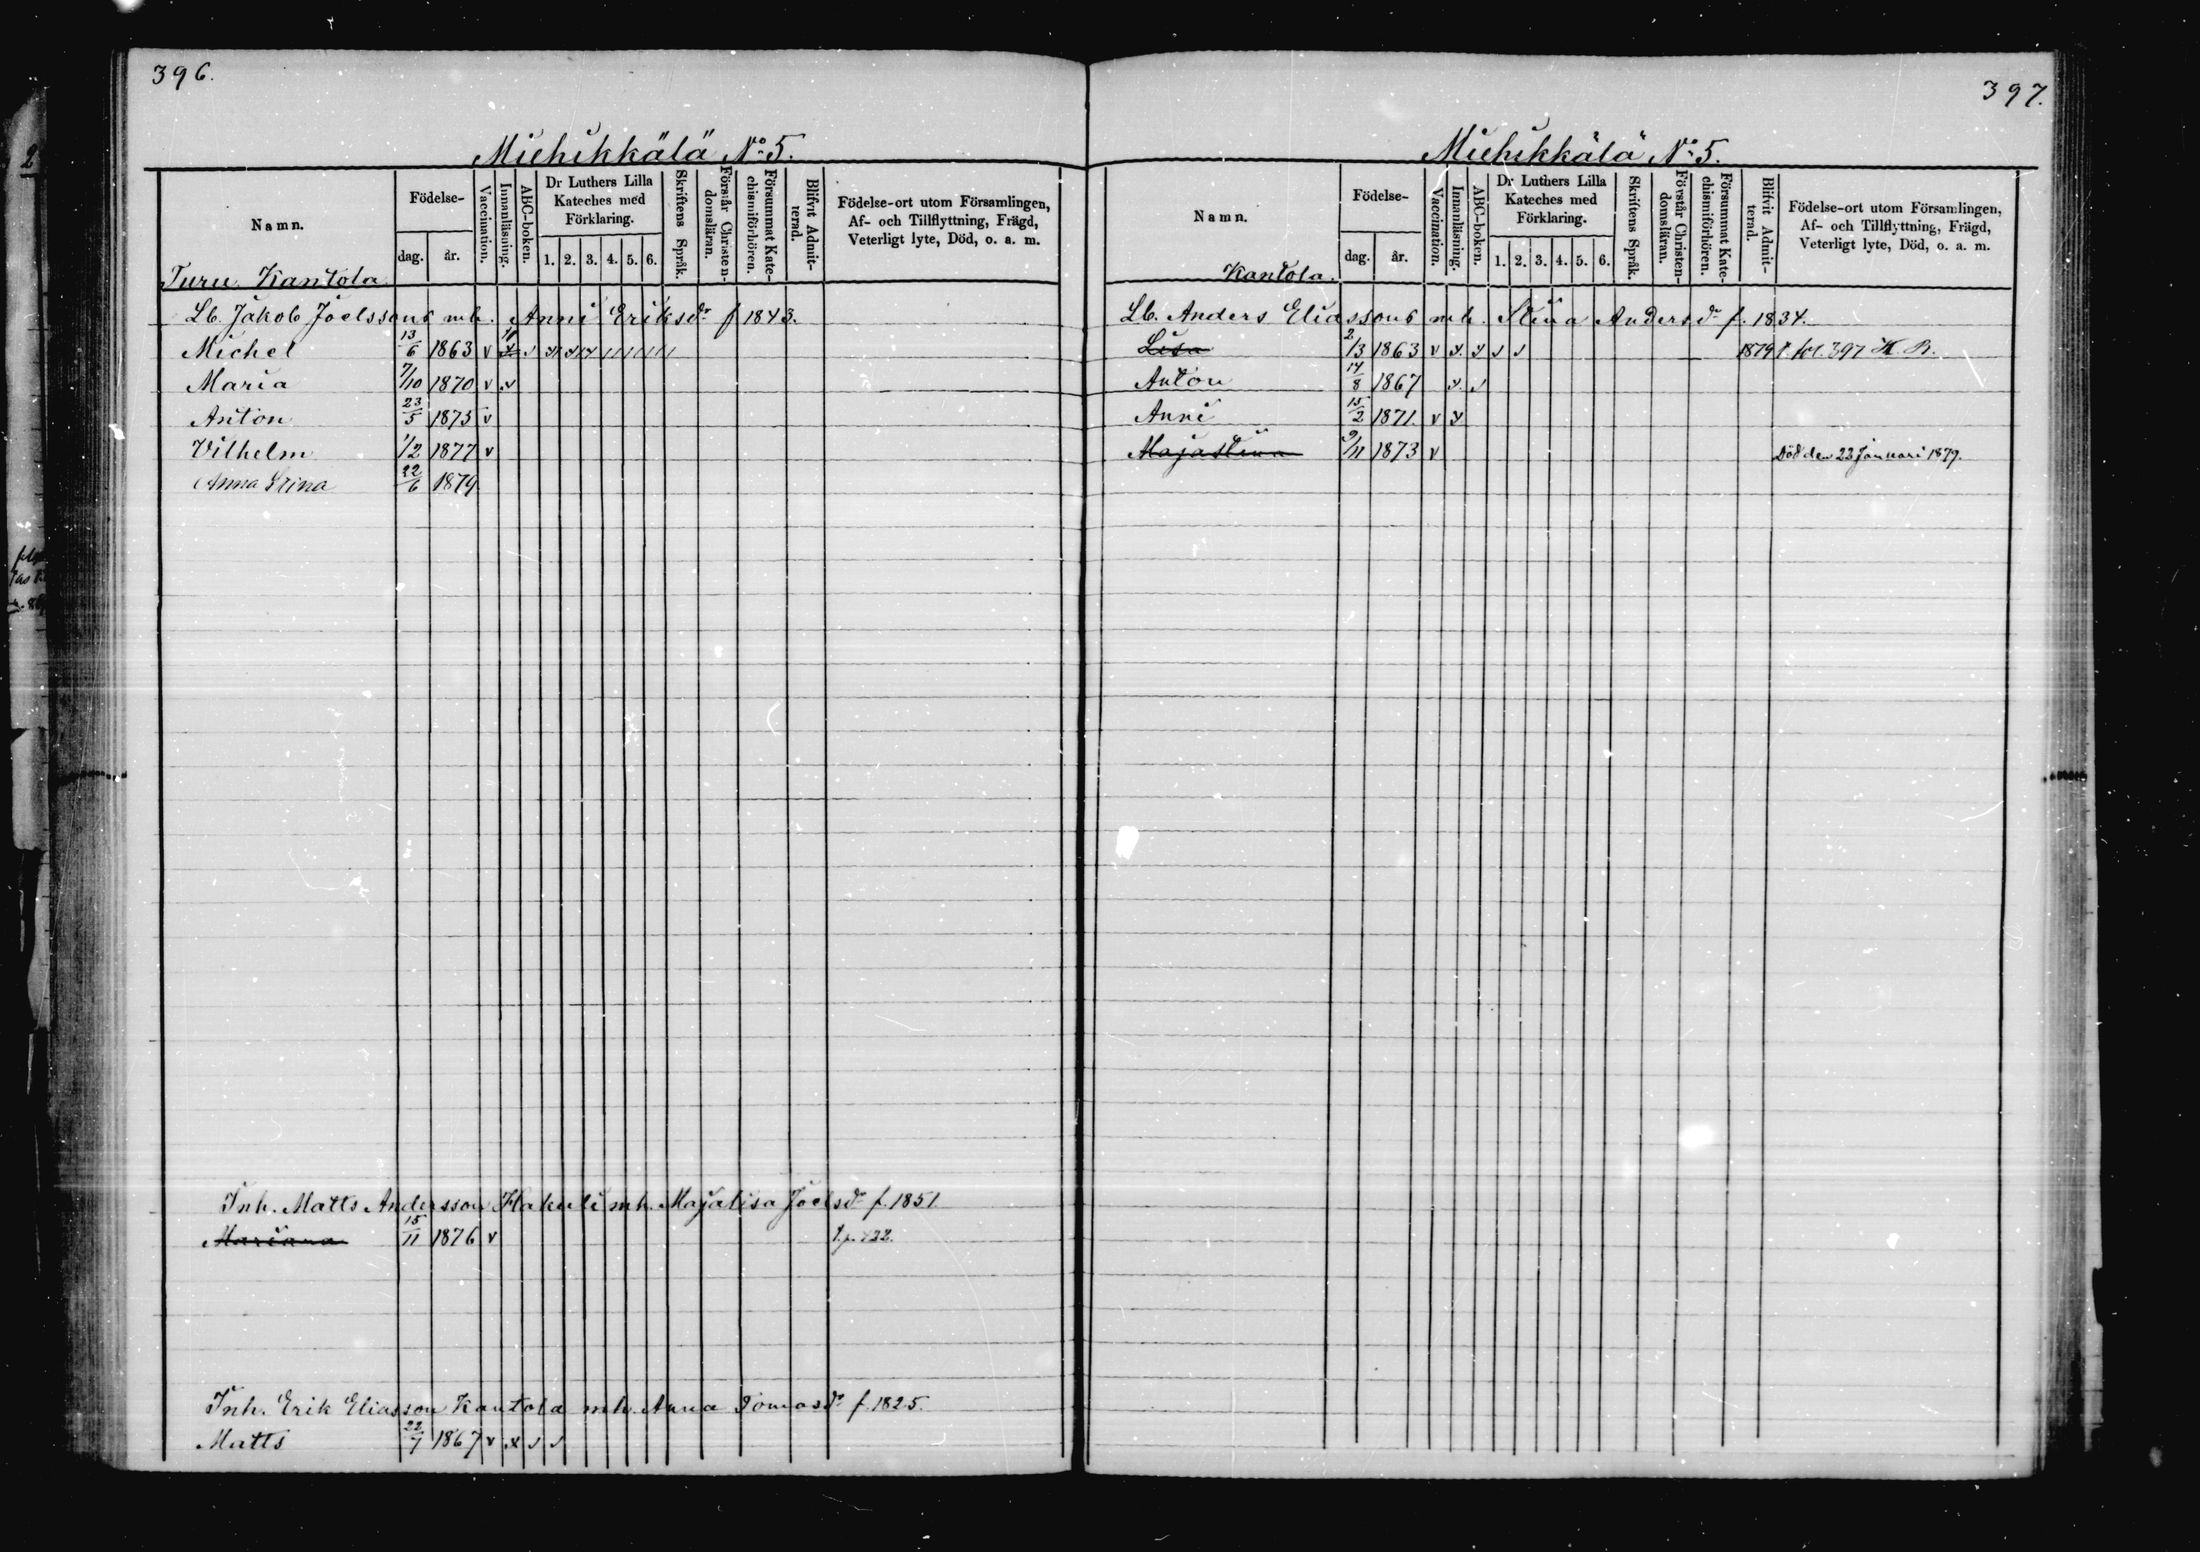 396.
Michikkälä No 5.
Namn.
Födelse-
dag.
år.
Vaccination.
Innanläsning.
ABC-boken.
Dr Luthers Lilla
Kateches med
Förklaring.
1. 2. 3. 4. 5. 6.
Skriftens Språk.
Förstår Christen-
domsläran.
Försummat Kate-
chismiförhören.
Blifvit Admit-
terad.
Födelse-ort utom Församlingen,
Af- och Tillflyttning, Frägd,
Veterligt lyte, Död, o. a. m.
Turu Kantola
Lb. Jakob Joelssons mh. Anni Eriksdr f 1843.
Michel 13/6 1863 v
Maria 7/10 1870 v
Anton 23/5 1873 v
Vilhelm 1/2 1877 v
Anna Stina 22/6 1879
Inh. Matts Andersson Hakuli mh. Majalisa Joelsdr f. 1851
Mariana 15/11 1876 v
Inh. Erik Eliasson Kantola mh. Anna Tomasdr f. 1825.
Matts 22/7 1867 v x
397.
Michikkälä No 5.
Namn.
Födelse-
dag.
år.
Vaccination.
Innanläsning.
ABC-boken.
Dr Luthers Lilla
Kateches med
Förklaring.
1. 2. 3. 4. 5. 6.
Skriftens Språk.
Förstår Christen-
domsläran.
Försummat Kate-
chismiförhören.
Blifvit Admit-
terad.
Födelse-ort utom Församlingen,
Af- och Tillflyttning, Frägd,
Veterligt lyte, Död, o. a. m.
Kantola.
Lb. Anders Eliassons mh. Stina Andersdr f. 1834.
Lisa 2/3 1863 v 1879 397 K. B.
Anton 14/8 1867
Anni 15/2 1871. v
Majastina 9/11 1873 v Död den 22 Januari 1879.